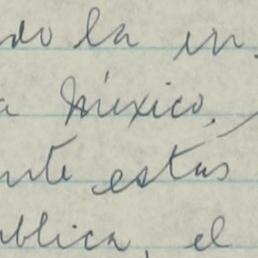 do la in
a México,
nte estas
ública, el